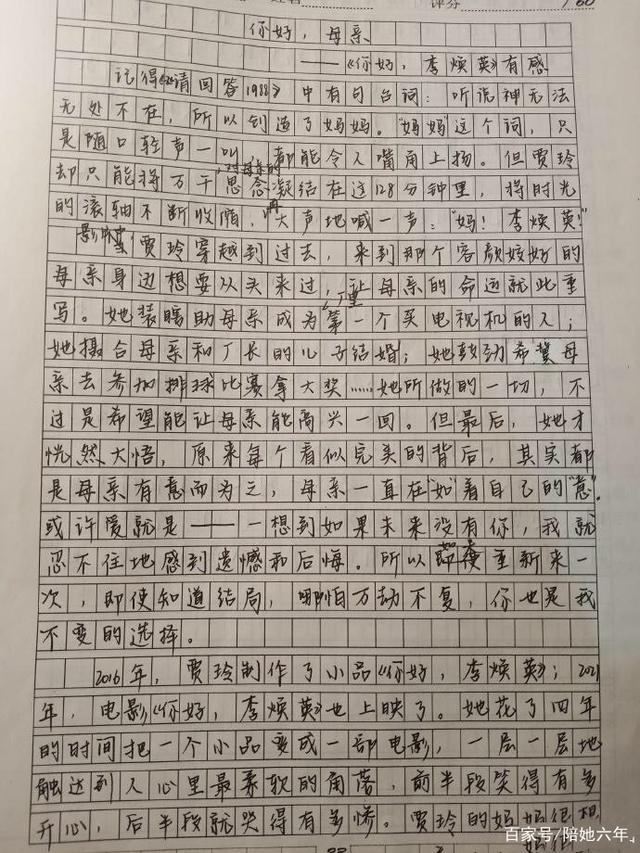 评分 /60
你好，母亲
——《你好，李焕英》有感
记得《请回答1988》中有句台词：听说神无法
无处不在，所以创造了妈妈。"妈妈"这个词，只
是随口轻声一叫，都能令人嘴角上扬。但贾玲
却只能将万千对母亲的思念凝结在这128分钟里，将时光
的滚轴不断收缩，再大声地喊一声："妈！李焕英！"
影片里贾玲穿越到过去，来到那个容颜姣好的
母亲身边想要从头来过，让母亲的命运就此重
写。她装瞎助母亲成为厂里第一个买电视机的人；
她撮合母亲和厂长的儿子结婚；她鼓劲希冀母
亲去参加排球比赛拿大奖……她所做的一切，不
过是希望能让母亲能高兴一回。但最后，她才
恍然大悟，原来每个看似完美的背后，其实都
是母亲有意而为之，母亲一直在"如"着自己的"意"。
或许爱就是——一想到如果未来没有你，我就
忍不住地感到遗憾和后悔。所以如果重新来一
次，即使知道结局，哪怕万劫不复，你也是我
不变的选择。
2016年，贾玲制作了小品《你好，李焕英》；2021
年，电影《你好，李焕英》也上映了。她花了四年
的时间把一个小品变成一部电影，一层一层地
触达到人心里最柔软的角落，前半段笑得有多
开心，后半段就哭得有多惨。贾玲的妈妈很想
百家号/陪她六年